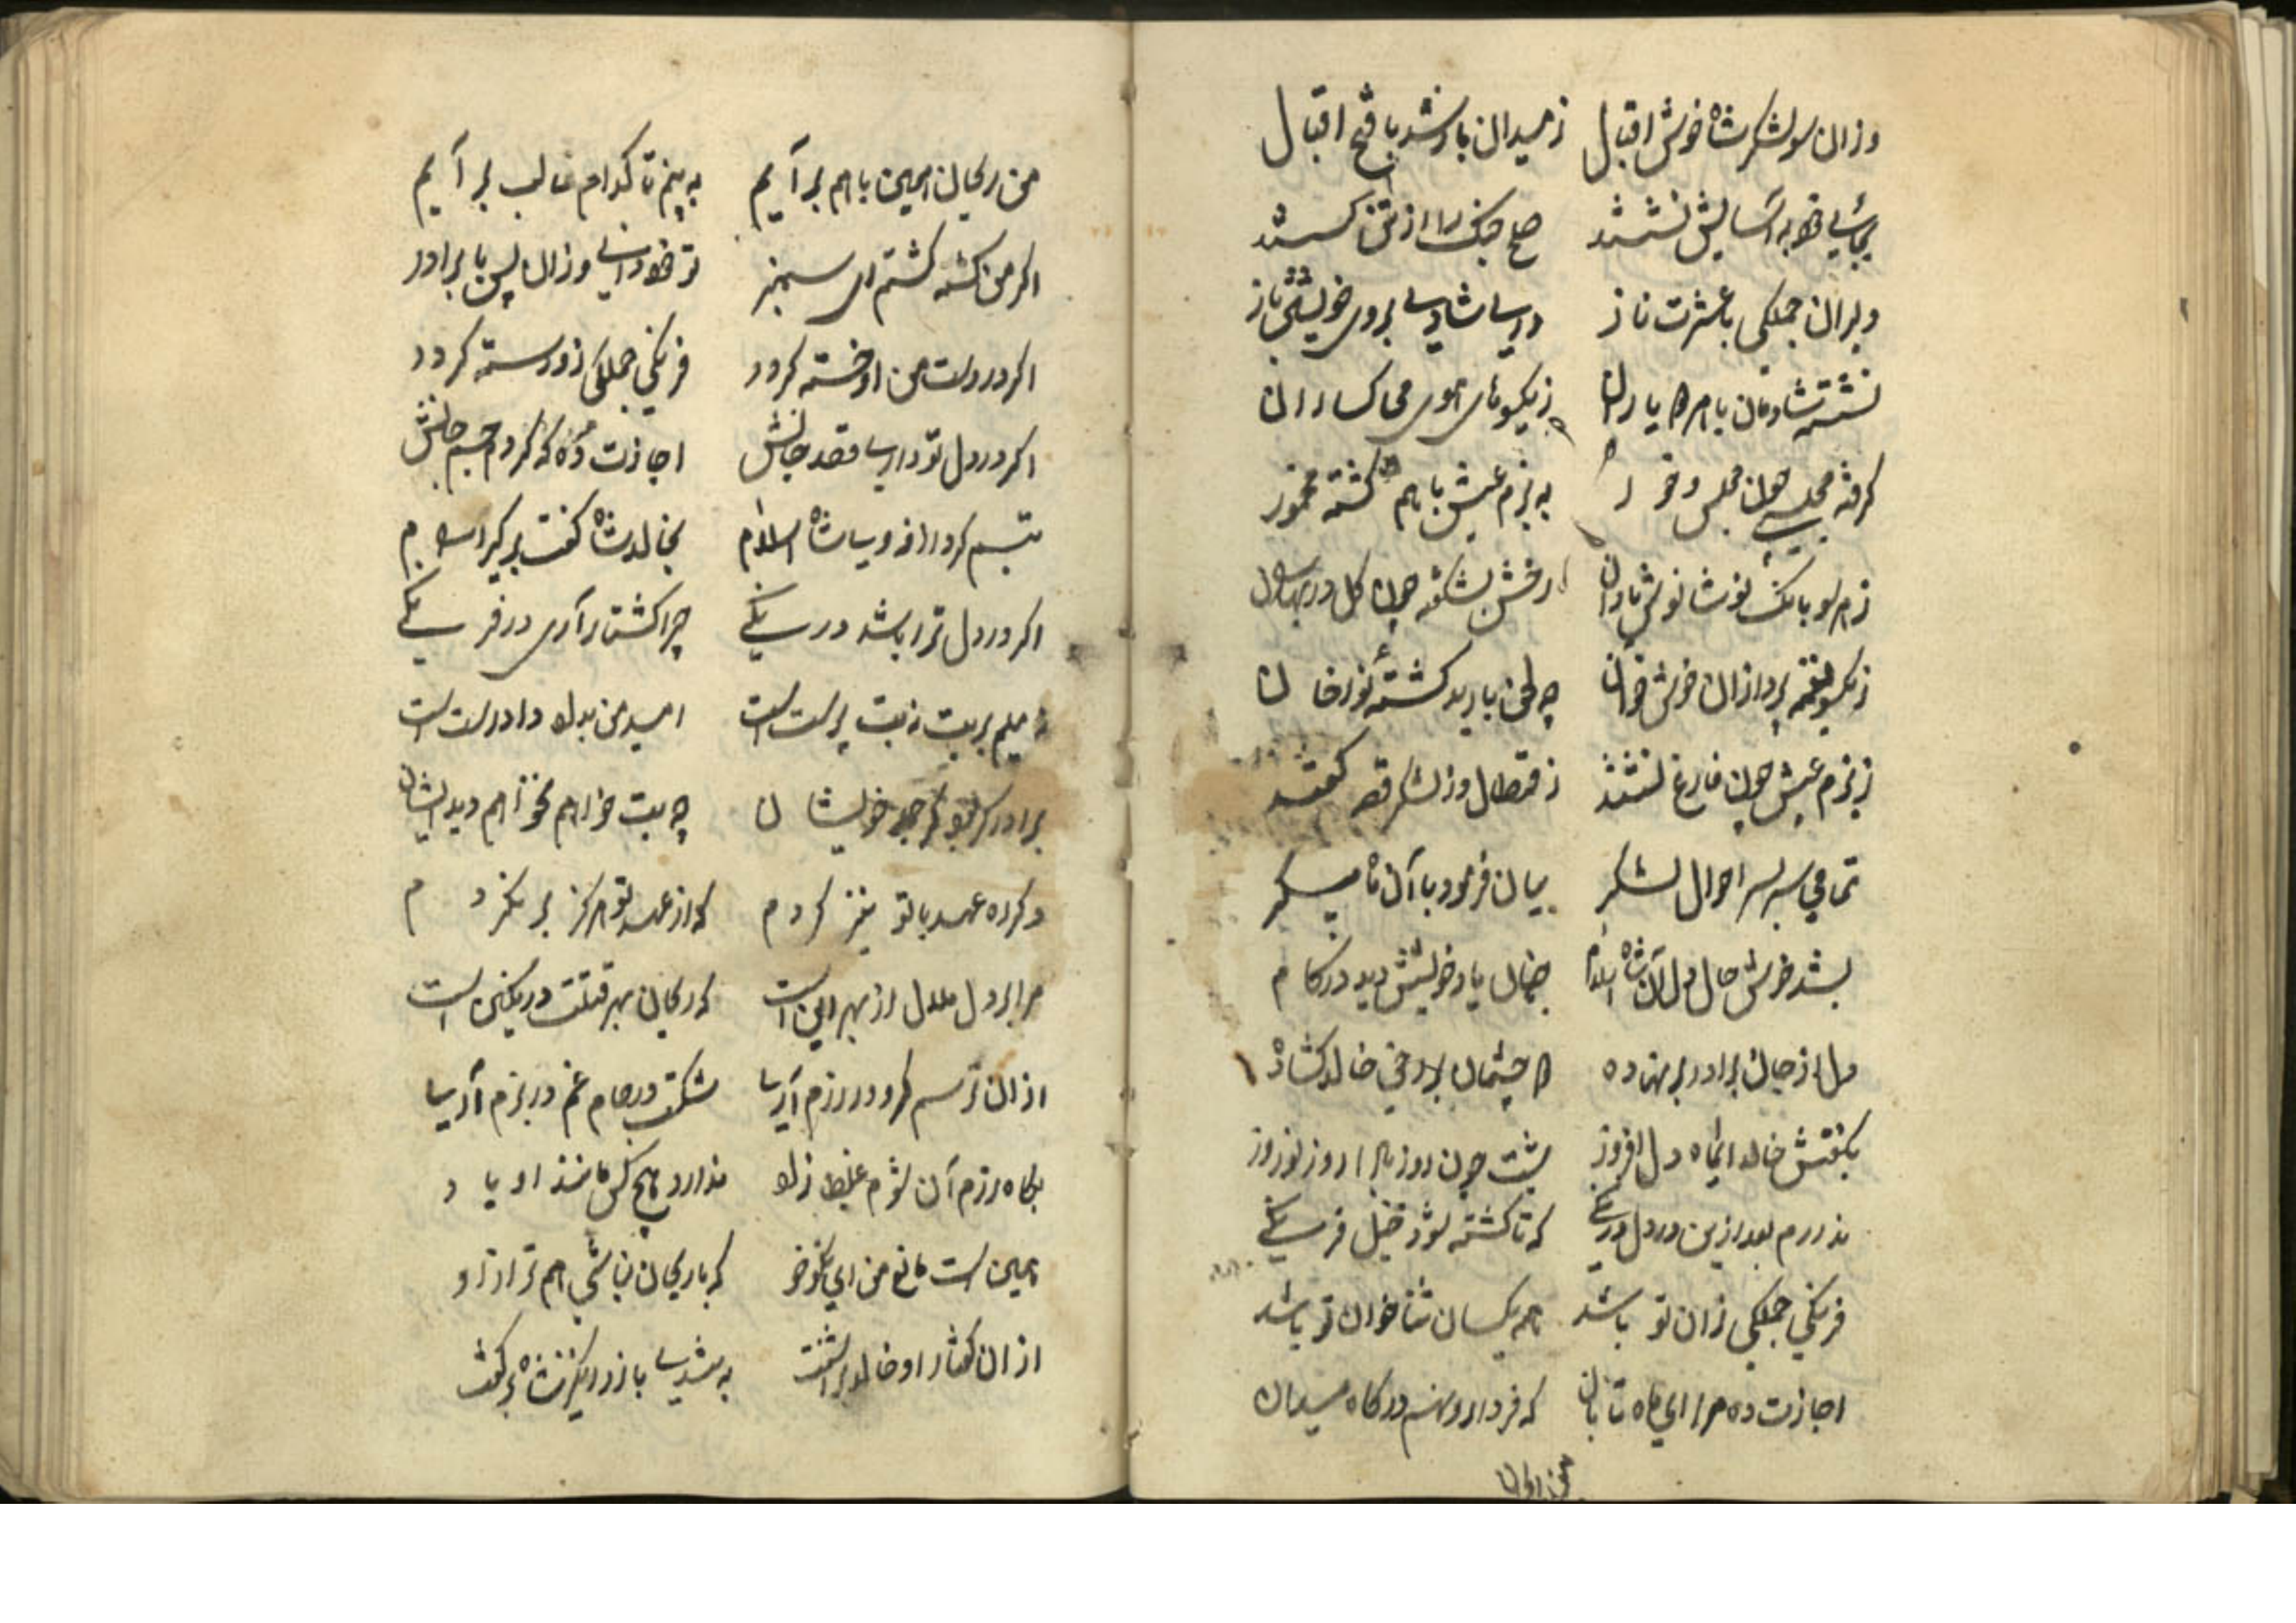 وزان سو لشکر شاه خوش اقبال زمیدان باز شد با فتح اقبال
بجای خوب آسایش نشستند صلح جنک را از تن کسستند
دلیران جملکی با عشرت ناز در شادی بروی خویشتن باز
نشسته شادمان با مرد یاران زیکسو می کساران
کرفته مجلسی چون مجلس حور به بزم عیش با هم کشته مخمور
زهر سو بانک نوشانوش یاران رخش بشکفته چون کل در بهاران
زیکسو نغمه پردازان خوش خوان چه لحن باربد کشته نواخان
زبزم عیش چون فارغ نشستند زقتال وز لشکر قصه کفتند
تمامی سر بسر احوال لشکر بیان فرمود با آن ماه پیکر
بشد خوش حال دل آن شاه اسلام جمال یار خویشتن دید در کام
دل از جان برادر بر نهاده چشمان بر رخ خالد کشاده
بکفتش خالد ایماه دل افروز شبت چون روز بادا روز نوروز
ندارم بعد ازین در دل درنکی که تا کشته شود خیل فرنکی
فرنکی جملکی زان تو باشد همه یکسان ثنا خوان تو باشد
اجازت ده مرا ای ماه تابان که فردا رو نهم در کاه میدان
من ریحان همین با هم بر آیم به بینم تا کدام غالب بر آیم
اکر من کشته کشتم ای سمنبر تو خود دانی وزان پس با برادر
اکر در دست من او خسته کردد فرنکی جملکی زو رسته کردد
اکر در دل تو داری قصد جانش اجازت ده که کردم جسم جانش
تبسم کرد شاه اسلام بخالد شاه کفت بر کیر آرام
اکر در دل ترا باشد درنکی چرا کشتار آری در فرنکی
نه میلم بر بت نه بت پرست است امید من بدو دادرست است
برادر کر خویشان چه بت خواهم نخواهم دید ایشان
دکر ره عهد با تو نیز کردم که از عهد تو هرکز بر نکردم
مرا بر دل ملال از بهر این است که ریحان بهر قتلت در کمین است
ازان ترسم که در رزم آری شکست در جام غم در بزم آری
بکاه رزم آن شوم غلیظ زاد ندارد هیچ کس مانند او یاد
همین است مانع من ای نکو خو که با ریحان نباشی هم ترازو
ازان کفتار او خالد بر آشفت به تندی باز
من ریحان